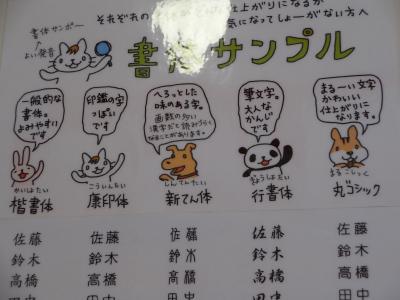 それぞれの
仕上がりになるか
気になってしょーがない方へ
書体サンポー
よい発音
書体サンプル
一般的な
書体。
よみやすいです
印鑑の字
っぽい
です
へろっとした
味のある字。
画数の多い
漢字だと読みづらく
なることがあります。
筆文字。
大人な
かんじ
です
まるーい文字
かわいい
仕上がりに
なります。
かいしょたい
楷書体
こういんたい
康印体
しんてんたい
新てん体
ぎょうしょたい
行書体
まるごしっく
丸ゴシック
佐藤 佐藤 佐藤 佐藤 佐藤
鈴木 鈴木 鈴木 鈴木 鈴木
高橋 高橋 高橋 高橋 高橋
田中 田中 田中 田中